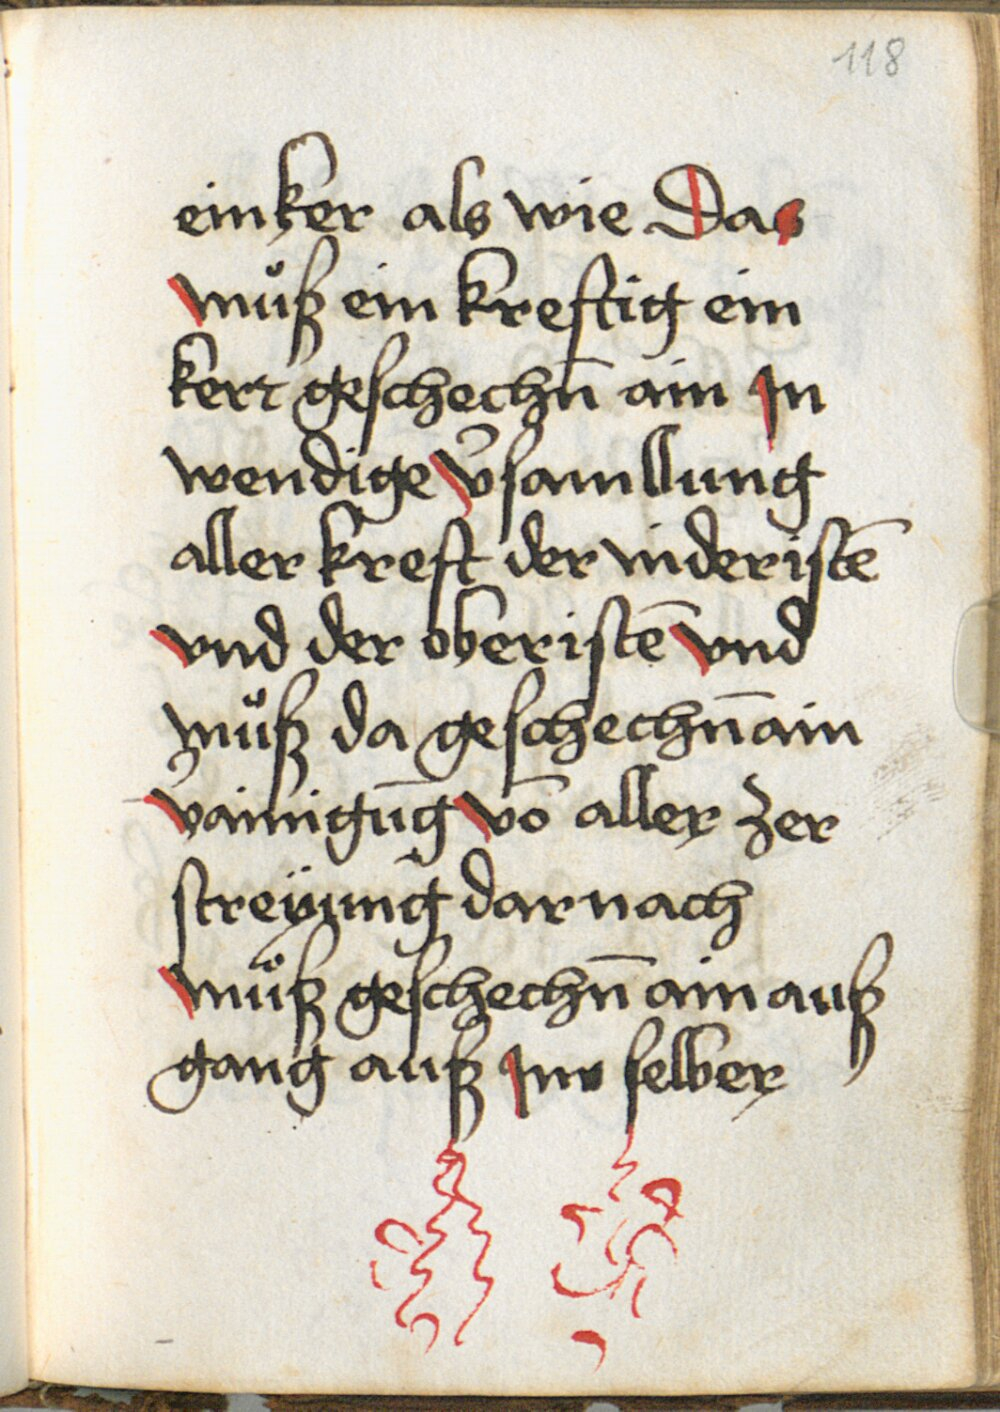 118
einker als wie Das
muͦß ein kreftig ein
kert geschechn̄ ain In
wendige v̄samllung
aller kreft der nideristē
vnd der oberistē vnd
muͦß da geschechn̄ ain
vainigūg vō aller zer
streÿung darnach
muͦß geschechn̄ ain auß
gang auß Im selber